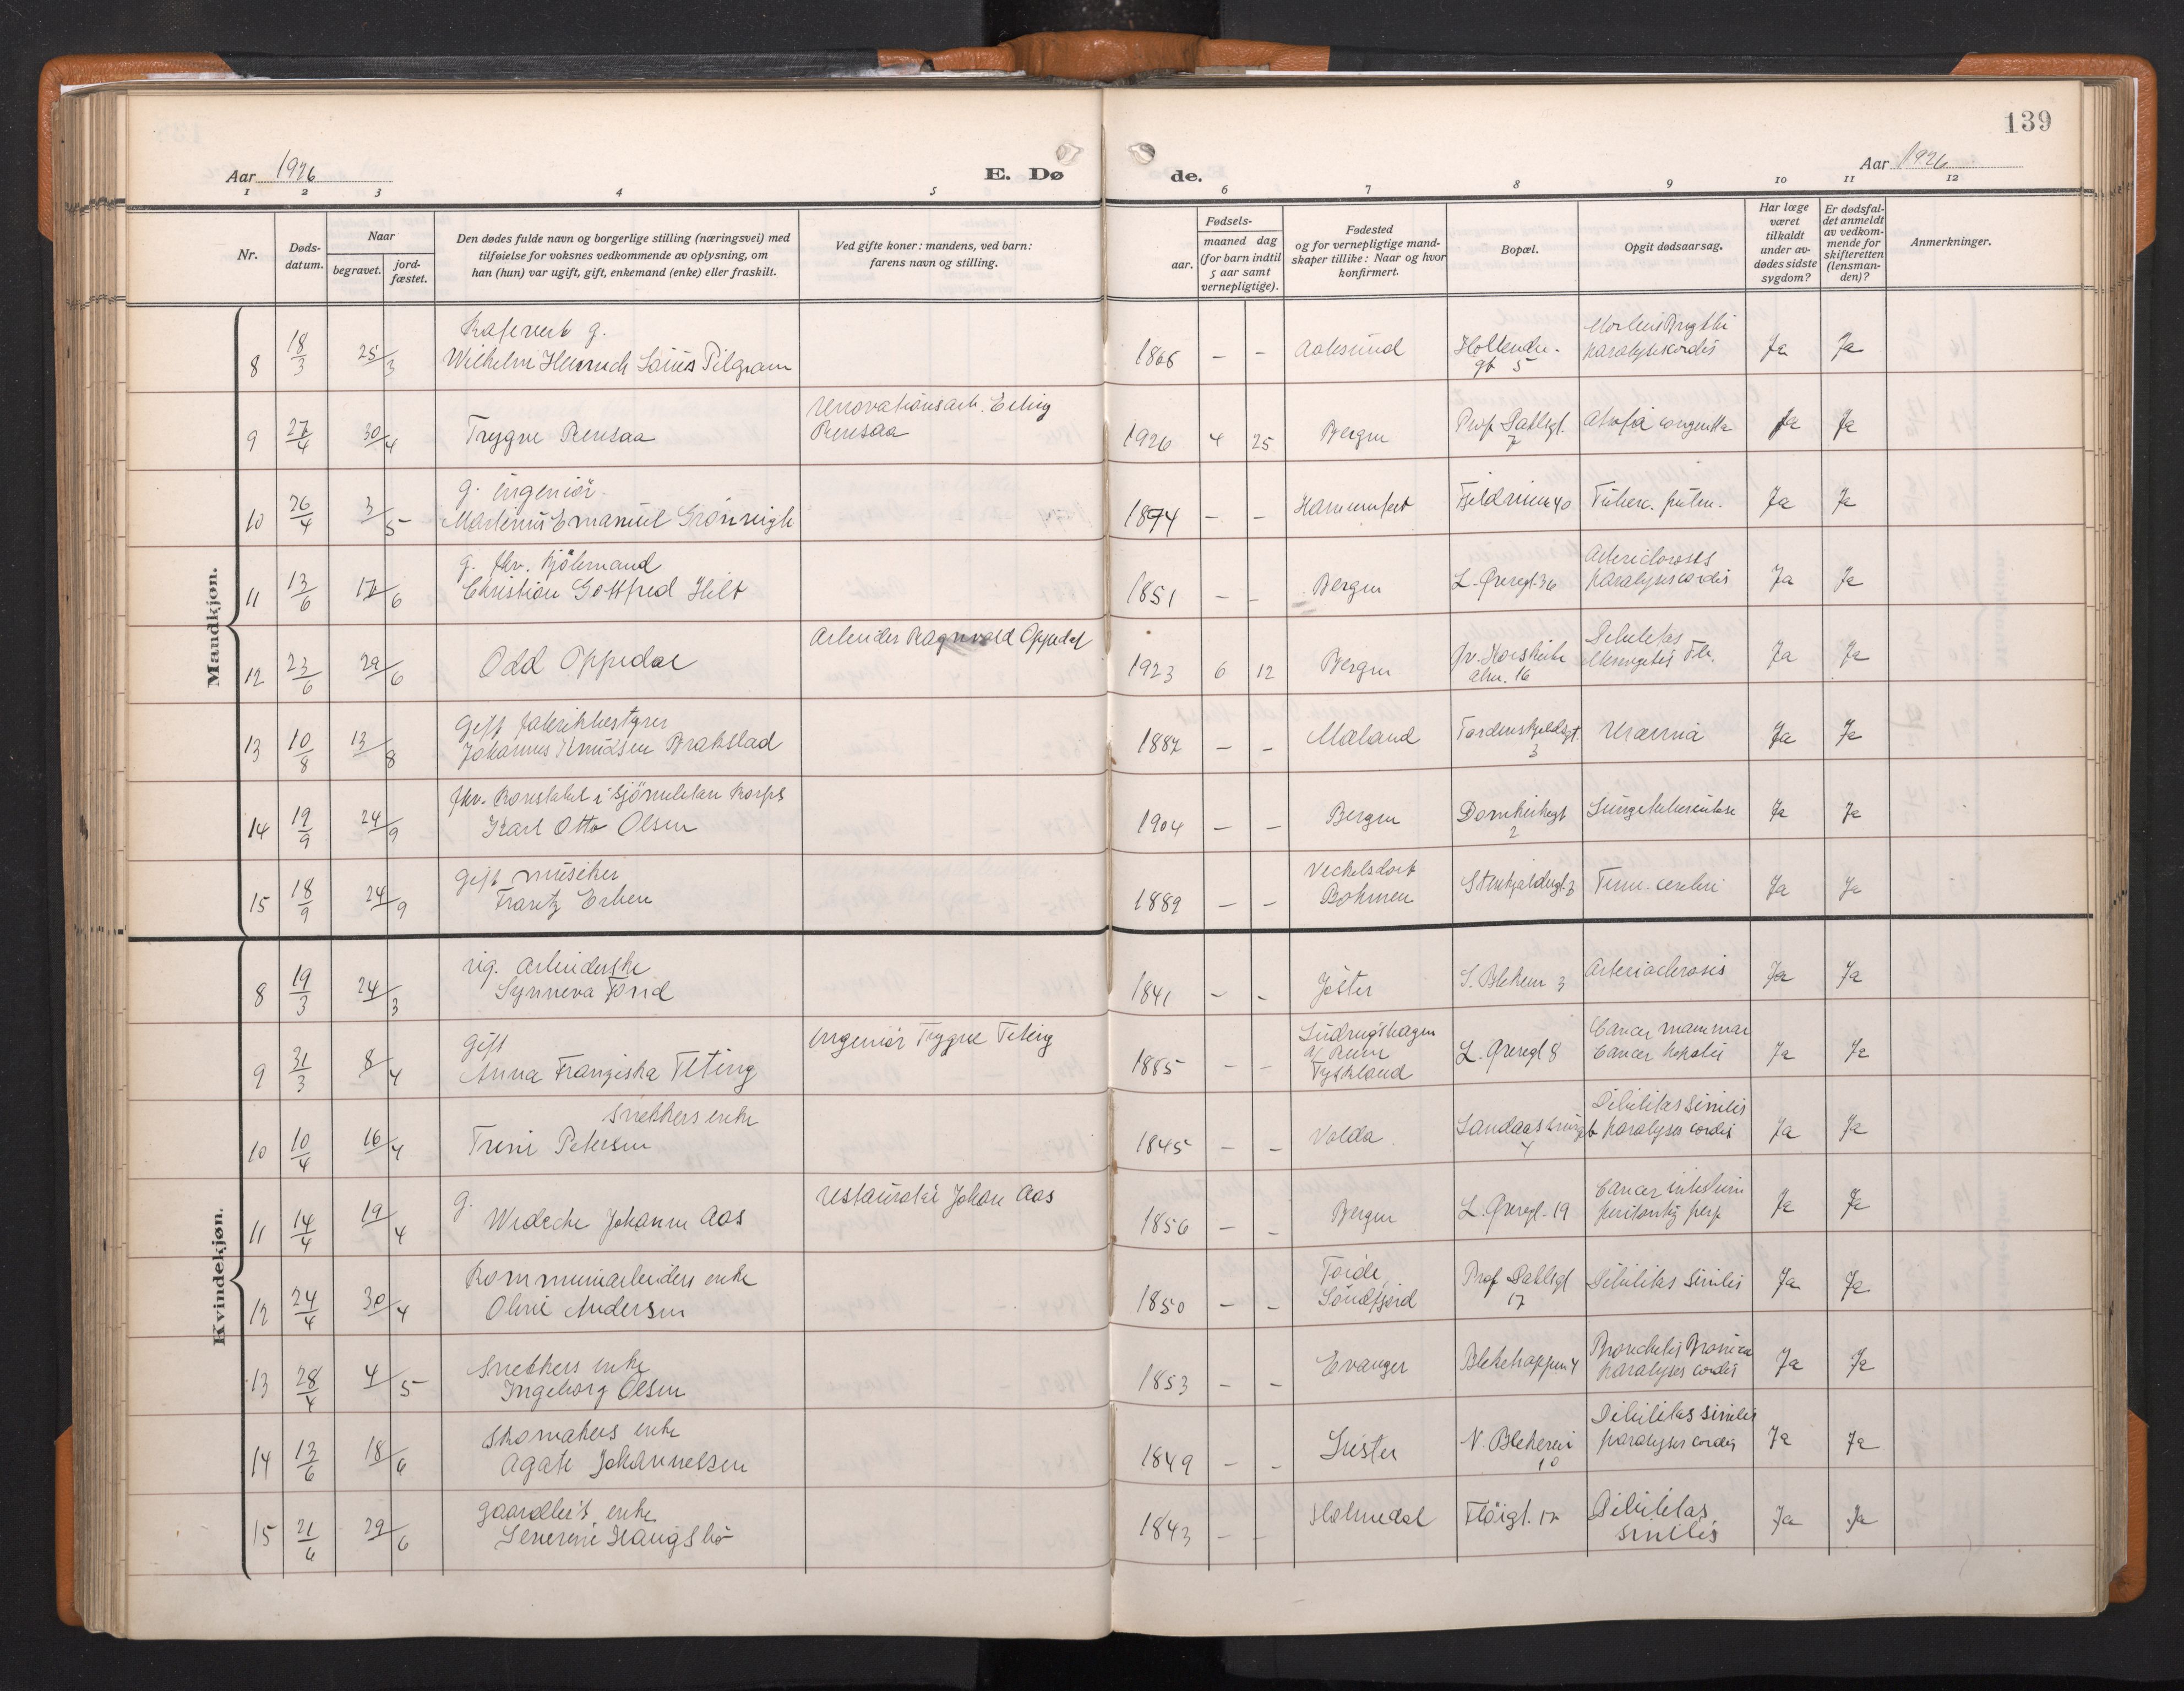 139
Aar 1926
E. Dø
de.
Aar 1926
1 2 3 4 5 6 7 8 9 10 11 12
Nr.
Døds-
datum.
Naar
begravet.
jord-
fæstet.
Den dødes fulde navn og borgerlige stilling (næringsvei) med
tilføielse for voksnes vedkommende av oplysning, om
han (hun) var ugift, gift, enkemand (enke) eller fraskilt.
Ved gifte koner: mandens, ved barn:
farens navn og stilling.
Fødsels-
aar.
maaned dag
(for barn indtil
5 aar samt
vernepligtige).
Fødested
og for vernepligtige mand-
skaper tillike: Naar og hvor
konfirmert.
Bopæl.
Opgit dødsaarsag.
Har læge
været
tilkaldt
under av-
dødes sidste
sygdom?
Er dødsfal-
det anmeldt
av vedkom-
mende for
skifteretten
(lensman-
den)?
Anmerkninger.
Mandkjøn.
Kafevert g.
8 18/3 25/3 Wilhelm Heinrich Pilgram 1866 - - Aalesund
gt 5 paralysis cordis Ja Ja
9 27/4 30/4 Trygve Rensaa
Renovationsarb. Erling
Rensaa
1926 4 25 Bergen Prof Dahlsgt.
7
Atrofia congenita Ja Ja
g. ingeniör
10 26/4 3/5 Martinus Emanuel Grönningh 1874 - - Hammerfest 40 Tuberc. pulm. Ja Ja
g. fhv. Kjölemand
11 13/6 17/6 Christian Gottfred Hilt 1851 - - Bergen L. Øvregt. 36
paralysis cordis Ja Ja
12 23/6 29/6 Odd Oppedal
Arbeider Ragnvald Oppedal
1923 6 12 Bergen
alm. 16
Debilitas
Ja Ja
Gift fabrikbestyrer
13 10/8 13/8 Johannes Knudsen Brakstad 1887 - - Mæland Tordenskjoldsgt.
3
Uræmia Ja Ja
fhv. Konstabel i Sjömilitære Korps
14 19/9 24/9 Karl Otto Olsen 1904 - - Bergen Domkirkegt
2
Lungetuberkulose Ja Ja
Gift musiker
15 18/9 24/9 Frantz Erben 1889 - - Veckelsdorf
Bohmen
3 Tum. cerebri Ja Ja
Kvindekjøn.
ug. arbeiderske
8 19/3 24/3 Synneva Fond 1841 - - Jölster S. Blekevei 3 Arteriosclerosis Ja Ja
Gift
9 31/3 8/4 Anna Franziska Teting
Ingeniör Trygve Teting
1885 - -
Tyskland
L. Øvregt 8
Cancer mammae
Cancer hepatis
Ja Ja
Snekkers enke
10 10/4 16/4 Trine Petersen 1845 - - Volda
4
Debilitas Senilis
paralyses cordis Ja Ja
g.
11 14/4 19/4 Wedeche Johanne Aas
restauratör Johan Aas
1856 - - Bergen L. Øvregt. 19
Cancer intestini
Ja Ja
Kommunearbeiders enke
12 24/4 30/4 Oline Andersen 1850 - - Förde,
Söndfjord
Prof Dahlsgt
17
Debilitas Senilis Ja Ja
Snekkers enke
13 28/4 4/5 Ingeborg Olsen 1853 - - Evanger Blekehappen 4
Bronchitis
paralyses cordis Ja Ja
Skomakers enke
14 13/6 18/6 Agate Johannesen 1849 - - Luster N. Blekevei
10
Debilitas senilis
paralyses cordis Ja Ja
Gaardbr's enke
15 21/6 29/6 Severine Haugsbö 1843 - - Holmedal Flöigt. 12
Debilitas
senilis
Ja Ja